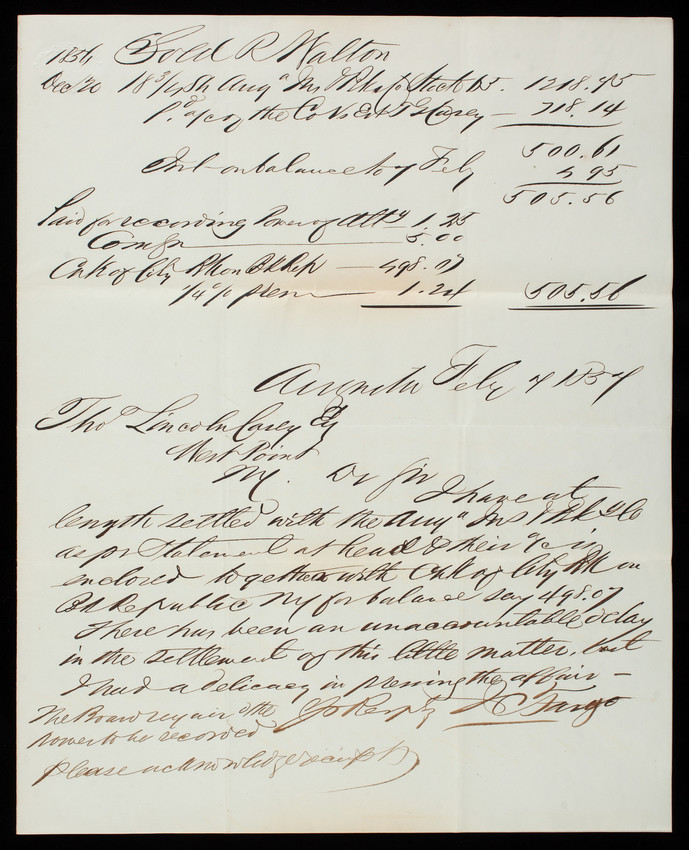 1856 Sold R Walton
Dec 20 18 3/4 Sh Augᵃ Ins & Bk Co Stock 65. 1218.75
Pᵈ a/c of the Co Vs Est T G Casey — 718.14
500.61
Int on balance to 7 Feby 4 95
505.56
Paid for recording Power of Atty — 1.25
Comsn — 5.00
Chk of City Bk on Bk Rep — 498.07
1/4 % prem — 1.24 505.56
Augusta Feby 7 1857
Tho Lincoln Casey Esq
West Point
NY. Dr Sir I have at
length settled with the Augᵃ Ins & Bk Co
as pr Statement at head & their a/c is
enclosed together with Chk of City Bk on
Bk Republic NY for balance say 498.07
There has been an unaccountable delay
in the settlement of this little matter. but
I had a delicacy in pressing the affair —
The Board require the Yr Respty Fargo
Power to be recorded
please acknowledge receipt